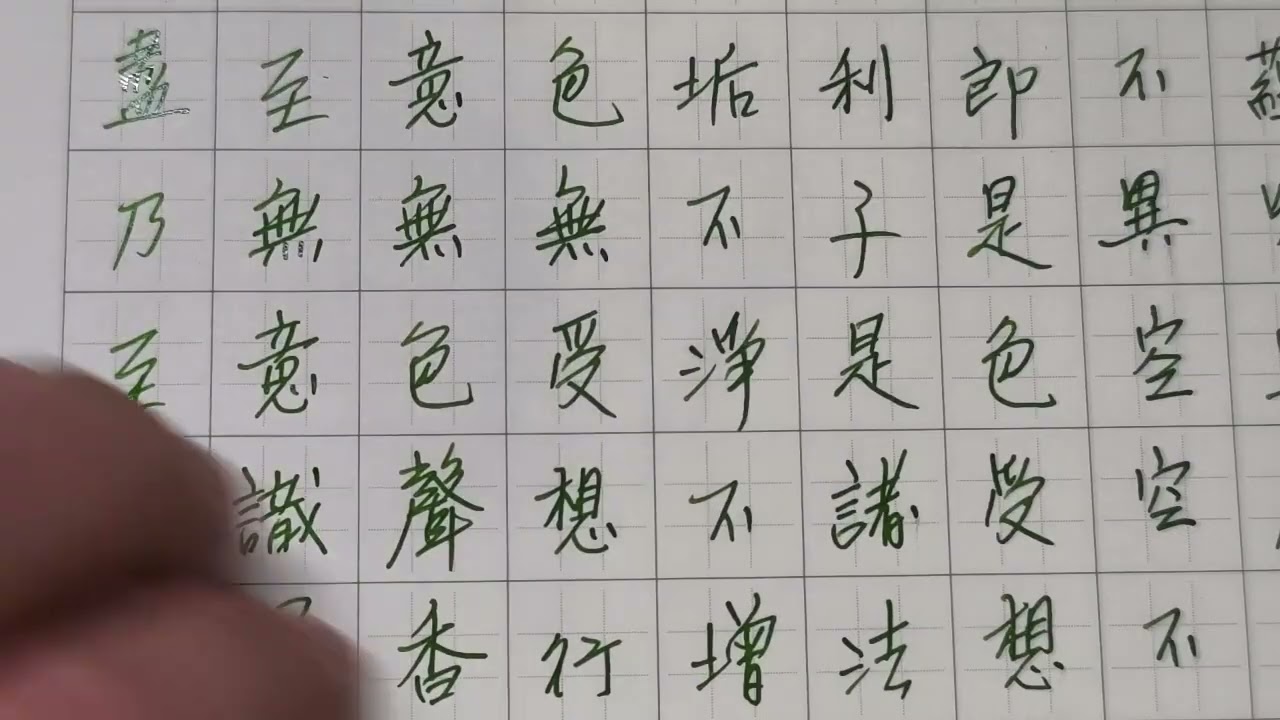 蘊
不異空空不
即是色受想
利子是諸法
垢不淨不增
色無受想行
意無色聲香
至無意識
盡乃至